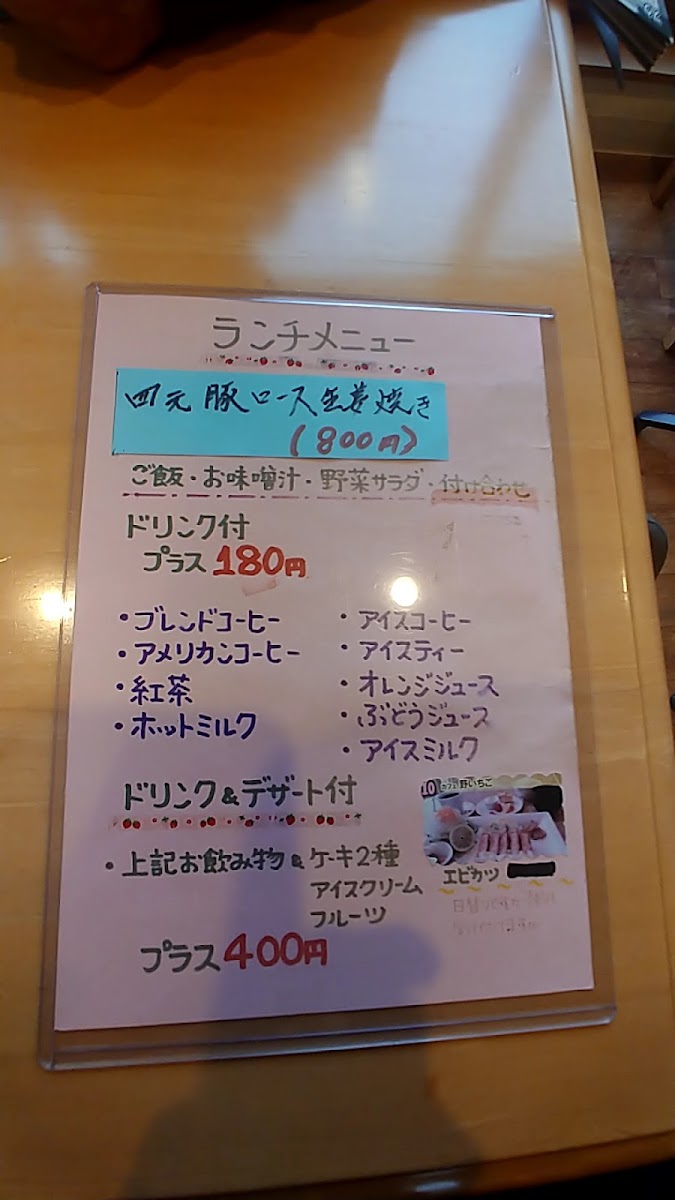 ランチメニュー
四元豚ロース生姜焼き
(800円)
ご飯・お味噌汁・野菜サラダ・付け合わせ
ドリンク付
プラス180円
・ブレンドコーヒー
・アメリカンコーヒー
・紅茶
・ホットミルク
・アイスコーヒー
・アイスティー
・オレンジジュース
・ぶどうジュース
・アイスミルク
ドリンク&デザート付
・上記お飲み物&ケーキ2種
アイスクリーム
フルーツ
プラス400円
10 カフェ野いちご
エビカツ